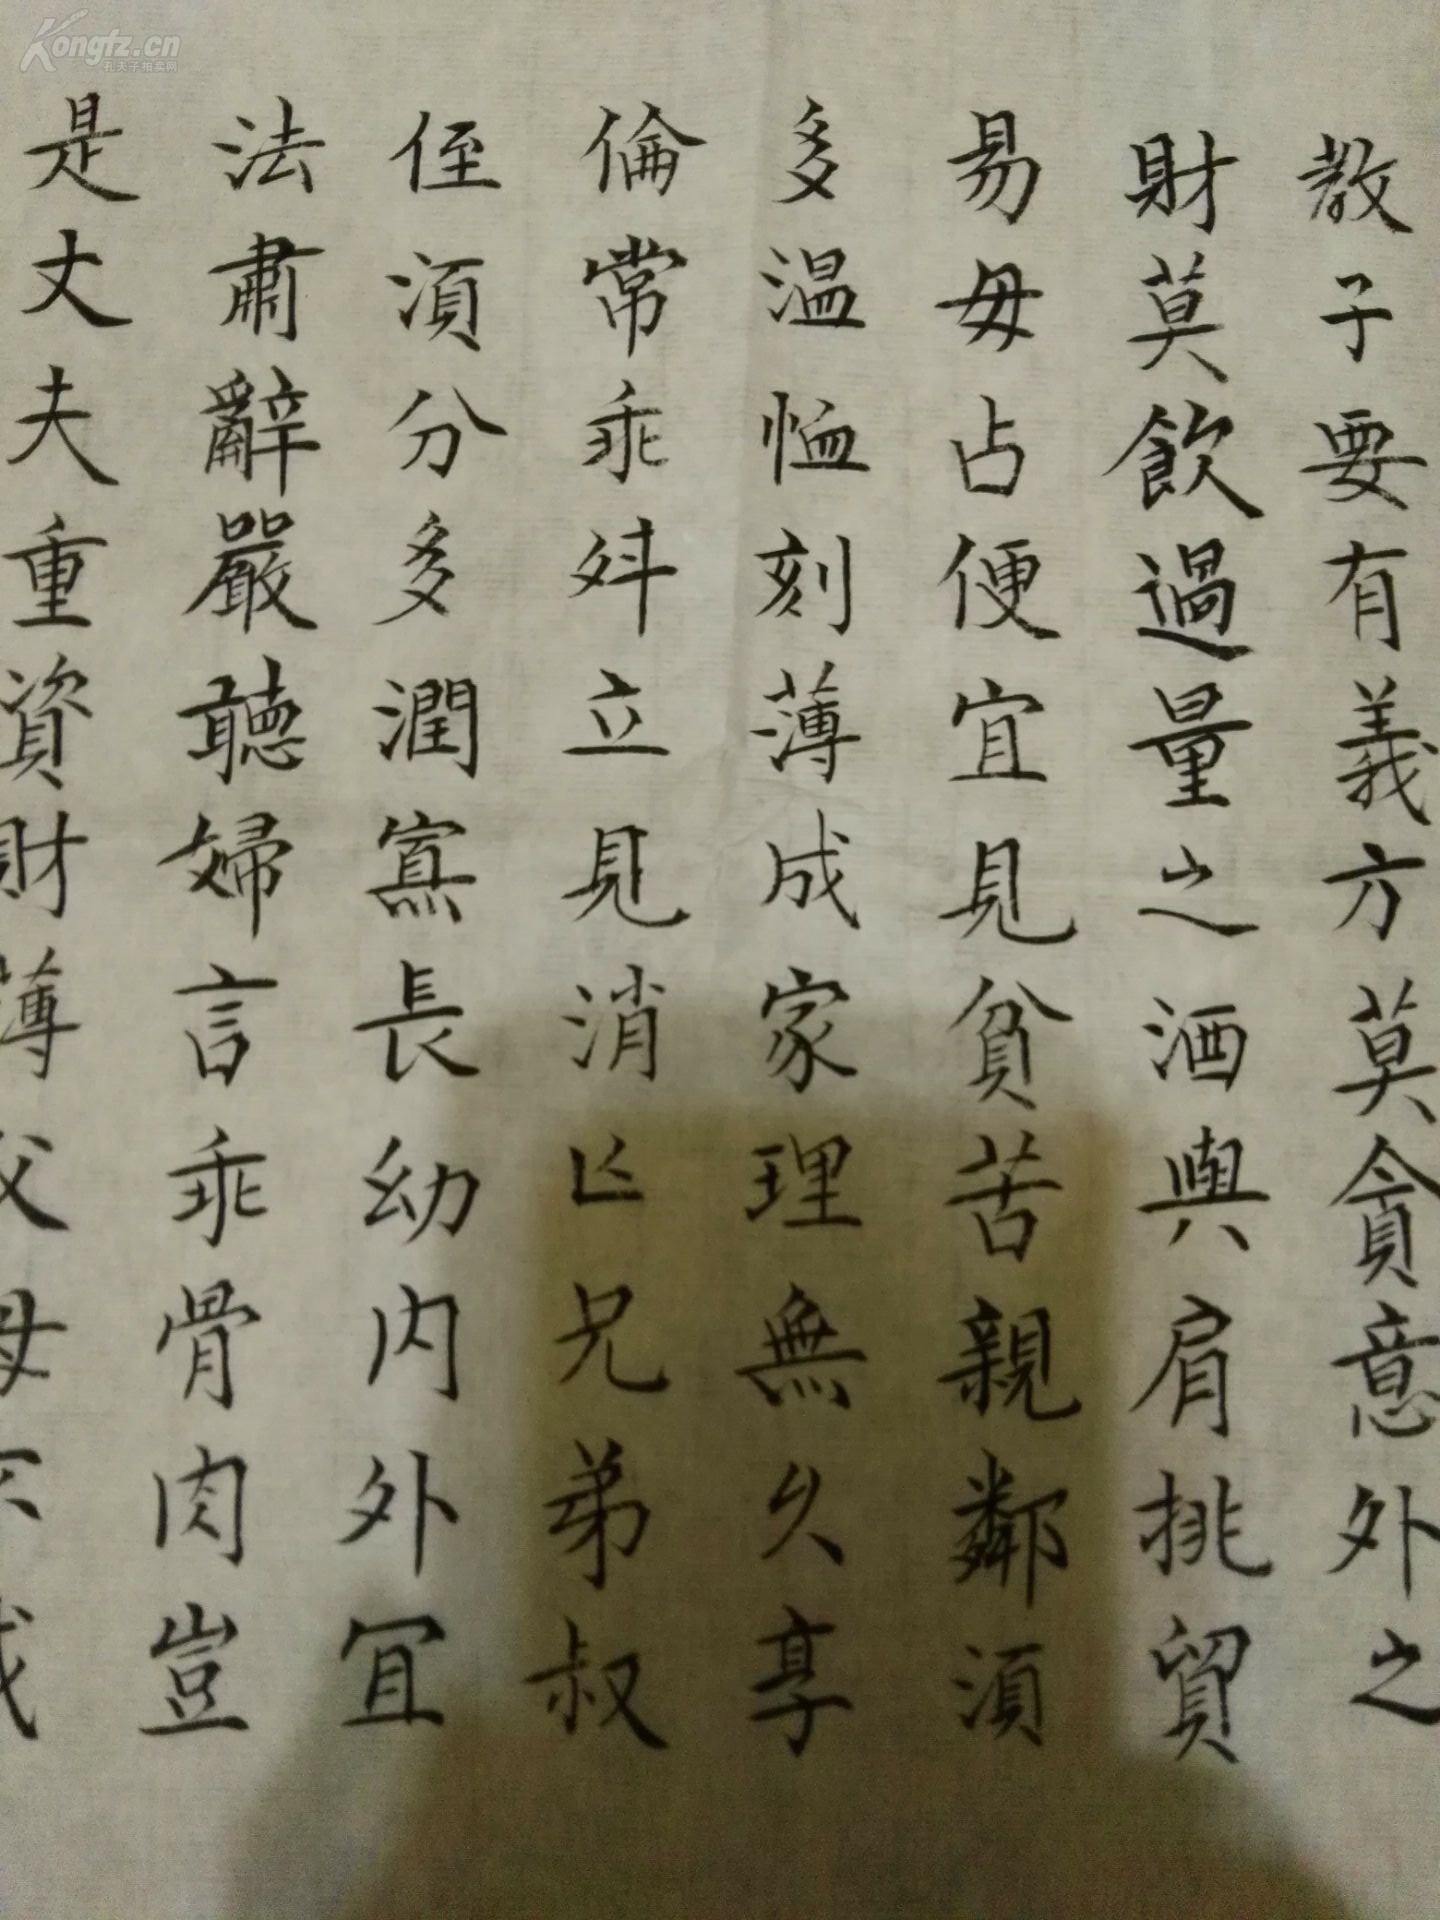 教子要有義方莫貪意外之
財莫飲過量之酒與肩挑貿
易毋占便宜見貧苦親鄰須
多温恤刻薄成家理無久享
倫常乖舛立見消亡兄弟叔
侄須分多潤寡長幼内外宜
法肅辭嚴聽婦言乖骨肉豈
是丈夫重資財薄父母不成
Kongfz.cn
孔夫子拍卖网